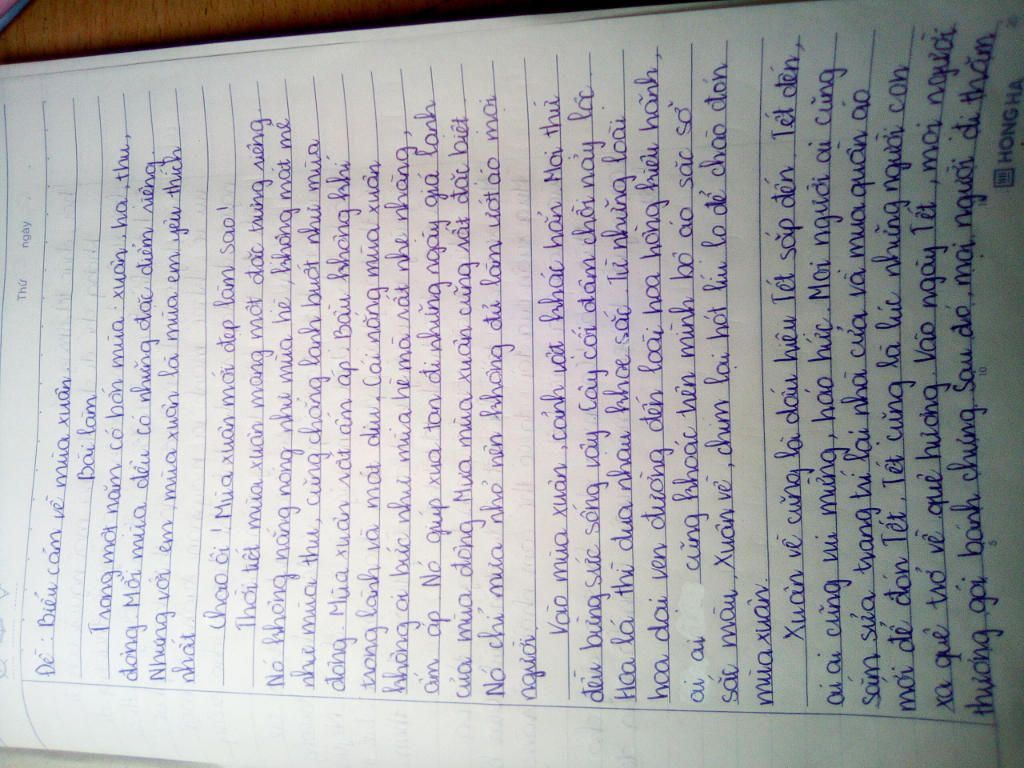 Thứ ngày
Đề: Biểu cảm về mùa xuân.
Bài làm
Trong một năm có bốn mùa: xuân, hạ, thu,
đông. Mỗi mùa đều có những đặc điểm riêng.
Nhưng với em, mùa xuân là mùa em yêu thích
nhất.
Chao ôi! Mùa xuân mới đẹp làm sao!
Thời tiết mùa xuân mang một đặc trưng riêng.
Nó không nắng nóng như mùa hè, không mát mẻ
như mùa thu, cũng chẳng lạnh buốt như mùa
đông. Mùa xuân rất ấm áp. Bầu không khí
trong lành và mát dịu. Cái nắng mùa xuân
không oi bức như mùa hè mà rất nhẹ nhàng,
ấm áp. Nó giúp xua tan đi những ngày giá lạnh
của mùa đông. Mưa mùa xuân cũng rất đặc biệt.
Nó chỉ mưa nhỏ nên không đủ làm ướt áo mỗi
người.
Vào mùa xuân, cảnh vật khác hẳn. Mọi thứ
đều bừng sức sống vậy. Cây cối đâm chồi nảy lộc.
Hoa lá thi đua nhau khoe sắc. Từ những loài
hoa dại ven đường đến loài hoa hồng kiêu hãnh,
ai ai cũng khoác trên mình bộ áo sặc sỡ
sắc màu. Xuân về, chim lại hót líu lo để chào đón
mùa xuân.
Xuân về cũng là dấu hiệu Tết sắp đến. Tết đến,
ai ai cũng vui mừng, háo hức. Mọi người ai cũng
sắm sửa, trang trí lại nhà cửa và mua quần áo
mới để đón Tết. Tết cũng là lúc những người con
xa quê trở về quê hương. Vào ngày Tết, mọi người
thường gói bánh chưng. Sau đó, mọi người đi thăm
HONG HA
5
10